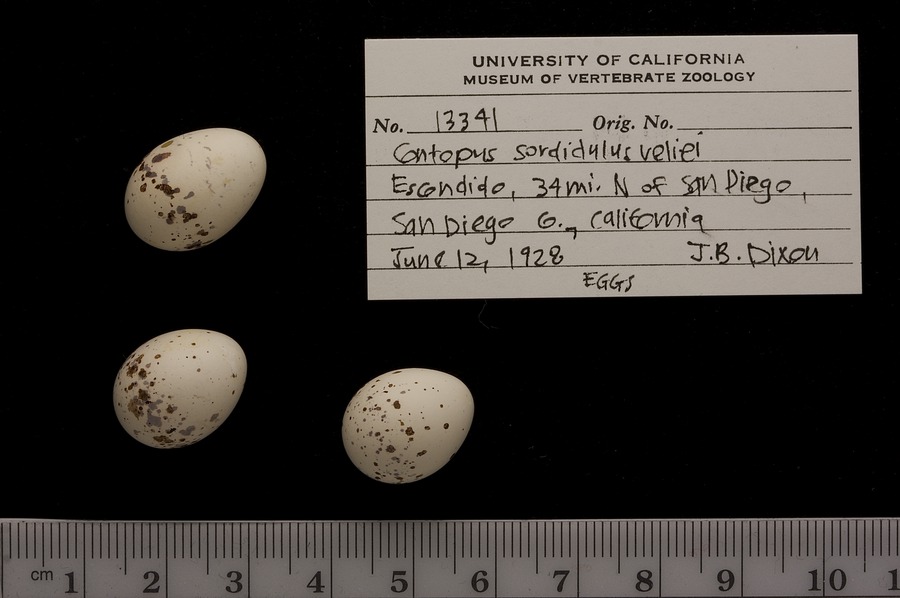 UNIVERSITY OF CALIFORNIA
MUSEUM OF VERTEBRATE ZOOLOGY
No. 13341 Orig. No.
Contopus sordidulus veliei
Escondido, 34 mi. N of San Diego,
San Diego Co., California
June 12, 1928 J.B. Dixon
EGGS
cm 1 2 3 4 5 6 7 8 9 10 1